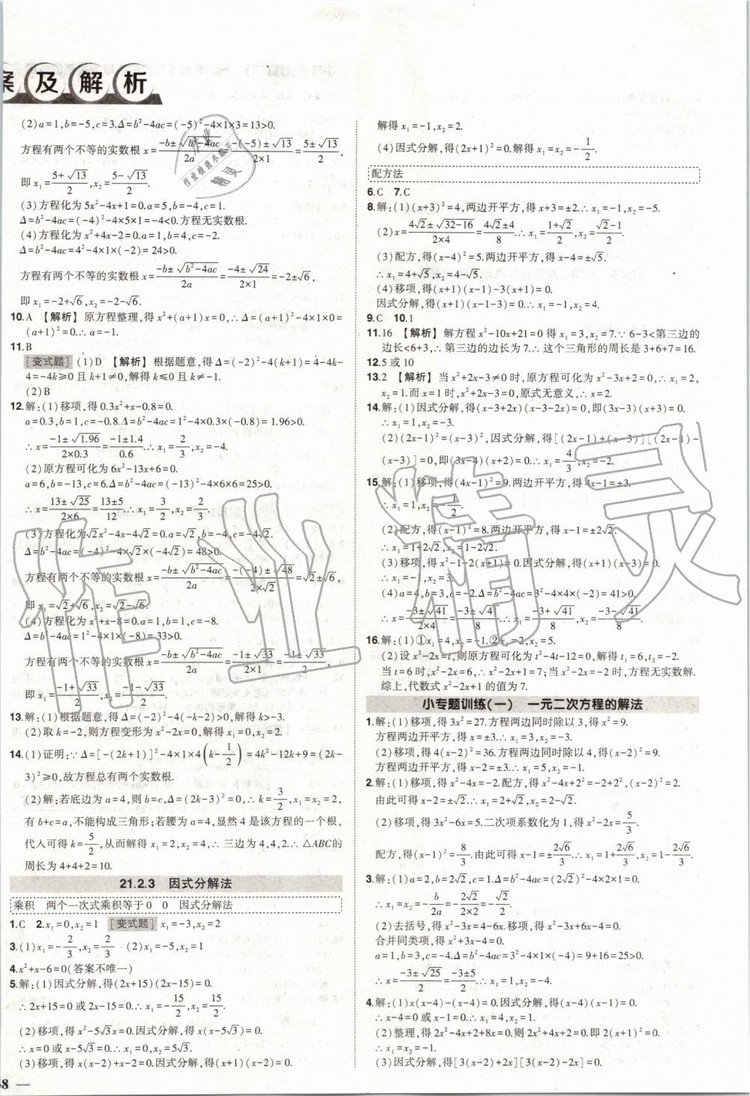 案及解析
(2)a=1,b=-5,c=3.Δ=b²-4ac=(-5)²-4×1×3=13>0.
方程有两个不等的实数根x=(-b±√(b²-4ac))/2a=(5±√13)/(2×1)=(5±√13)/2,
即x₁=(5+√13)/2,x₂=(5-√13)/2.
(3)方程化为5x²-4x+1=0.a=5,b=-4,c=1.
Δ=b²-4ac=(-4)²-4×5×1=-4<0.方程无实数根.
(4)方程化为x²+4x-2=0.a=1,b=4,c=-2.
Δ=b²-4ac=4²-4×1×(-2)=24>0.
方程有两个不等的实数根x=(-b±√(b²-4ac))/2a=(-4±√24)/(2×1)=-2±√6,
即x₁=-2+√6,x₂=-2-√6.
10.A 【解析】原方程整理,得x²+(a+1)x=0,∴Δ=(a+1)²-4×1×0=
(a+1)²=0.∴a=-1.
11.B
[变式题] (1)D 【解析】根据题意,得Δ=(-2)²-4(k+1)=4-4k-
4=-4k≥0且k+1≠0,解得k≤0且k≠-1.
(2)B
12.解:(1)移项,得0.3x²+x-0.8=0.
a=0.3,b=1,c=-0.8.Δ=b²-4ac=1²-4×0.3×(-0.8)=1.96>0.
∴x=(-1±√1.96)/(2×0.3)=(-1±1.4)/0.6.∴x₁=2/3,x₂=-4.
(2)原方程可化为6x²-13x+6=0.
a=6,b=-13,c=6.Δ=b²-4ac=(-13)²-4×6×6=25>0.
∴x=(13±√25)/(2×6)=(13±5)/12.∴x₁=3/2,x₂=2/3.
(3)方程化为√2x²-4x-4√2=0.a=√2,b=-4,c=-4√2.
Δ=b²-4ac=(-4)²-4×√2×(-4√2)=48>0.
方程有两个不等的实数根x=(-b±√(b²-4ac))/2a=(-(-4)±√48)/(2×√2)=√2±√6,
即x₁=√2+√6,x₂=√2-√6.
(4)方程化为x²+x-8=0.a=1,b=1,c=-8.
Δ=b²-4ac=1²-4×1×(-8)=33>0.
方程有两个不等的实数根x=(-b±√(b²-4ac))/2a=(-1±√33)/(2×1)=(-1±√33)/2,
即x₁=(-1+√33)/2,x₂=(-1-√33)/2.
13.解:(1)根据题意,得Δ=(-2)²-4(-k-2)>0,解得k>-3.
(2)取k=-2,则方程变形为x²-2x=0,解得x₁=0,x₂=2.
14.(1)证明:∵Δ=[-(2k+1)]²-4×1×4(k-1/2)=4k²-12k+9=(2k-
3)²≥0,故方程总有两个实数根.
(2)解:若底边为a=4,则b=c,Δ=(2k-3)²=0,解得x₁=2,x₂=2.
有b+c=a,不能构成三角形;若腰为a=4,显然4是该方程的一个根,
代入可得k=5/2,从而解得x₁=2,x₂=4,∴三边为4,4,2.∴△ABC的
周长为4+4+2=10.
21.2.3 因式分解法
乘积 两个一次式乘积等于0 0 因式分解法
1.C 2.x₁=0,x₂=1 [变式题] x₁=-3,x₂=2
3.(1)x₁=-2/3,x₂=2/3 (2)x₁=-5,x₂=1
4.x²+x-6=0(答案不唯一)
5.解:(1)因式分解,得(2x+15)(2x-15)=0.
∴2x+15=0或2x-15=0.∴x₁=-15/2,x₂=15/2.
(2)移项,得x²-5√3x=0.因式分解,得x(x-5√3)=0.
∴x=0或x-5√3=0.∴x₁=0,x₂=5√3.
(3)移项,得x²-x-2=0.因式分解,得(x+1)(x-2)=0.
解得x₁=-1,x₂=2.
(4)因式分解,得(2x+1)²=0.解得x₁=x₂=-1/2.
配方法
6.C 7.C
8.解:(1)(x+3)²=4,两边开平方,得x+3=±2.∴x₁=-1,x₂=-5.
(2)x=(4√2±√(32-16))/(2×4)=(4√2±4)/8.∴x₁=(1+√2)/2,x₂=(√2-1)/2.
(3)配方,得(x-4)²=5.两边开平方,得x-4=±√5.
∴x₁=4+√5,x₂=4-√5.
(4)移项,得(x+1)(x-1)-3(x+1)=0.
因式分解,得(x+1)(x-1-3)=0.∴x₁=-1,x₂=4.
9.C 10.1
11.16 【解析】解方程x²-10x+21=0得x₁=3,x₂=7.∵6-3<第三边的
边长<6+3,∴第三边的边长为7.∴这个三角形的周长是3+6+7=16.
12.5或10
13.2 【解析】当x²+2x-3≠0时,原方程可化为x²-3x+2=0,∴x₁=2,
x₂=1.而x=1时,x²+2x-3=0,原式无意义,∴x=2.
14.解:(1)因式分解,得(x-3+2x)(x-3-2x)=0,即(3x-3)(x+3)=0.
∴x₁=1,x₂=-3.
(2)(2x-1)²=(x-3)²,因式分解,得[(2x-1)+(x-3)][(2x-1)-
(x-3)]=0,即(3x-4)(x+2)=0.∴x₁=4/3,x₂=-2.
15.解:(1)移项,得(4x-1)²=9.两边开平方,得4x-1=±3.∴x₁=1,
x₂=-1/2.
(2)配方,得(x-1)²=8.两边开平方,得x-1=±2√2.
∴x₁=1+2√2,x₂=1-2√2.
(3)移项,得x²-1-2(x+1)=0.因式分解,得(x+1)(x-3)=0.
∴x₁=-1,x₂=3.
(4)a=4,b=3,c=-2.Δ=b²-4ac=3²-4×4×(-2)=41>0.
∴x=(-3±√41)/(2×4)=(-3±√41)/8.∴x₁=(-3+√41)/8,x₂=(-3-√41)/8.
(2)设x²-2x=t,则原方程可化为t²-4t-12=0,解得t₁=6,t₂=-2.
当t=6时,x²-2x=6;当t=-2时,x²-2x=-2,此时方程无实数解.
综上,代数式x²-2x+1的值为7.
小专题训练(一) 一元二次方程的解法
1.解:(1)移项,得3x²=27.方程两边同时除以3,得x²=9.
方程两边开平方,得x=±3.∴x₁=3,x₂=-3.
(2)移项,得4(x-2)²=36.方程两边同时除以4,得(x-2)²=9.
方程两边开平方,得x-2=±3.∴x₁=5,x₂=-1.
2.解:(1)移项,得x²-4x=-2.配方,得x²-4x+2²=-2+2²,(x-2)²=2.
由此可得x-2=±√2.∴x₁=2+√2,x₂=2-√2.
(2)移项,得3x²-6x=5.二次项系数化为1,得x²-2x=5/3.
配方,得(x-1)²=8/3.由此可得x-1=±2√6/3.∴x₁=1+2√6/3,
(2)去括号,得x²-3x=4-6x.移项,得x²-3x+6x-4=0.
合并同类项,得x²+3x-4=0.
a=1,b=3,c=-4.Δ=b²-4ac=3²-4×1×(-4)=9+16=25>0.
∴x=(-3±√25)/(2×1)=(-3±5)/2.∴x₁=-4,x₂=1.
4.解:(1)x(x-4)-(x-4)=0.因式分解,得(x-4)(x-1)=0.
∴x-4=0或x-1=0.∴x₁=4,x₂=1.
(2)整理,得x²+4x-2x+8x=0,则x²+2x+4x=0.∴x₁=-4,x₂=-2.
(3)因式分解,得[3(x-2)+2x][3(x-2)-2x]=0.